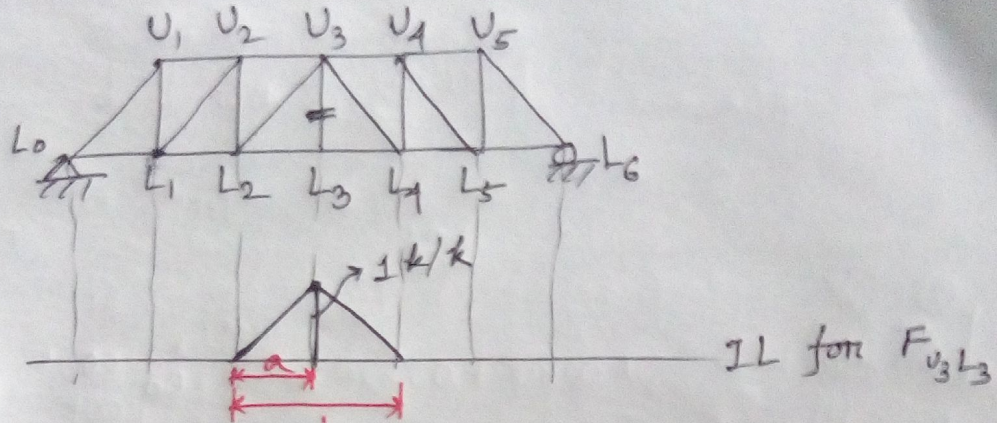 U₁ U₂ U₃ U₄ U₅
L₀ L₁ L₂ L₃ L₄ L₅ L₆
1 k/k
a
IL for F_U₃L₃